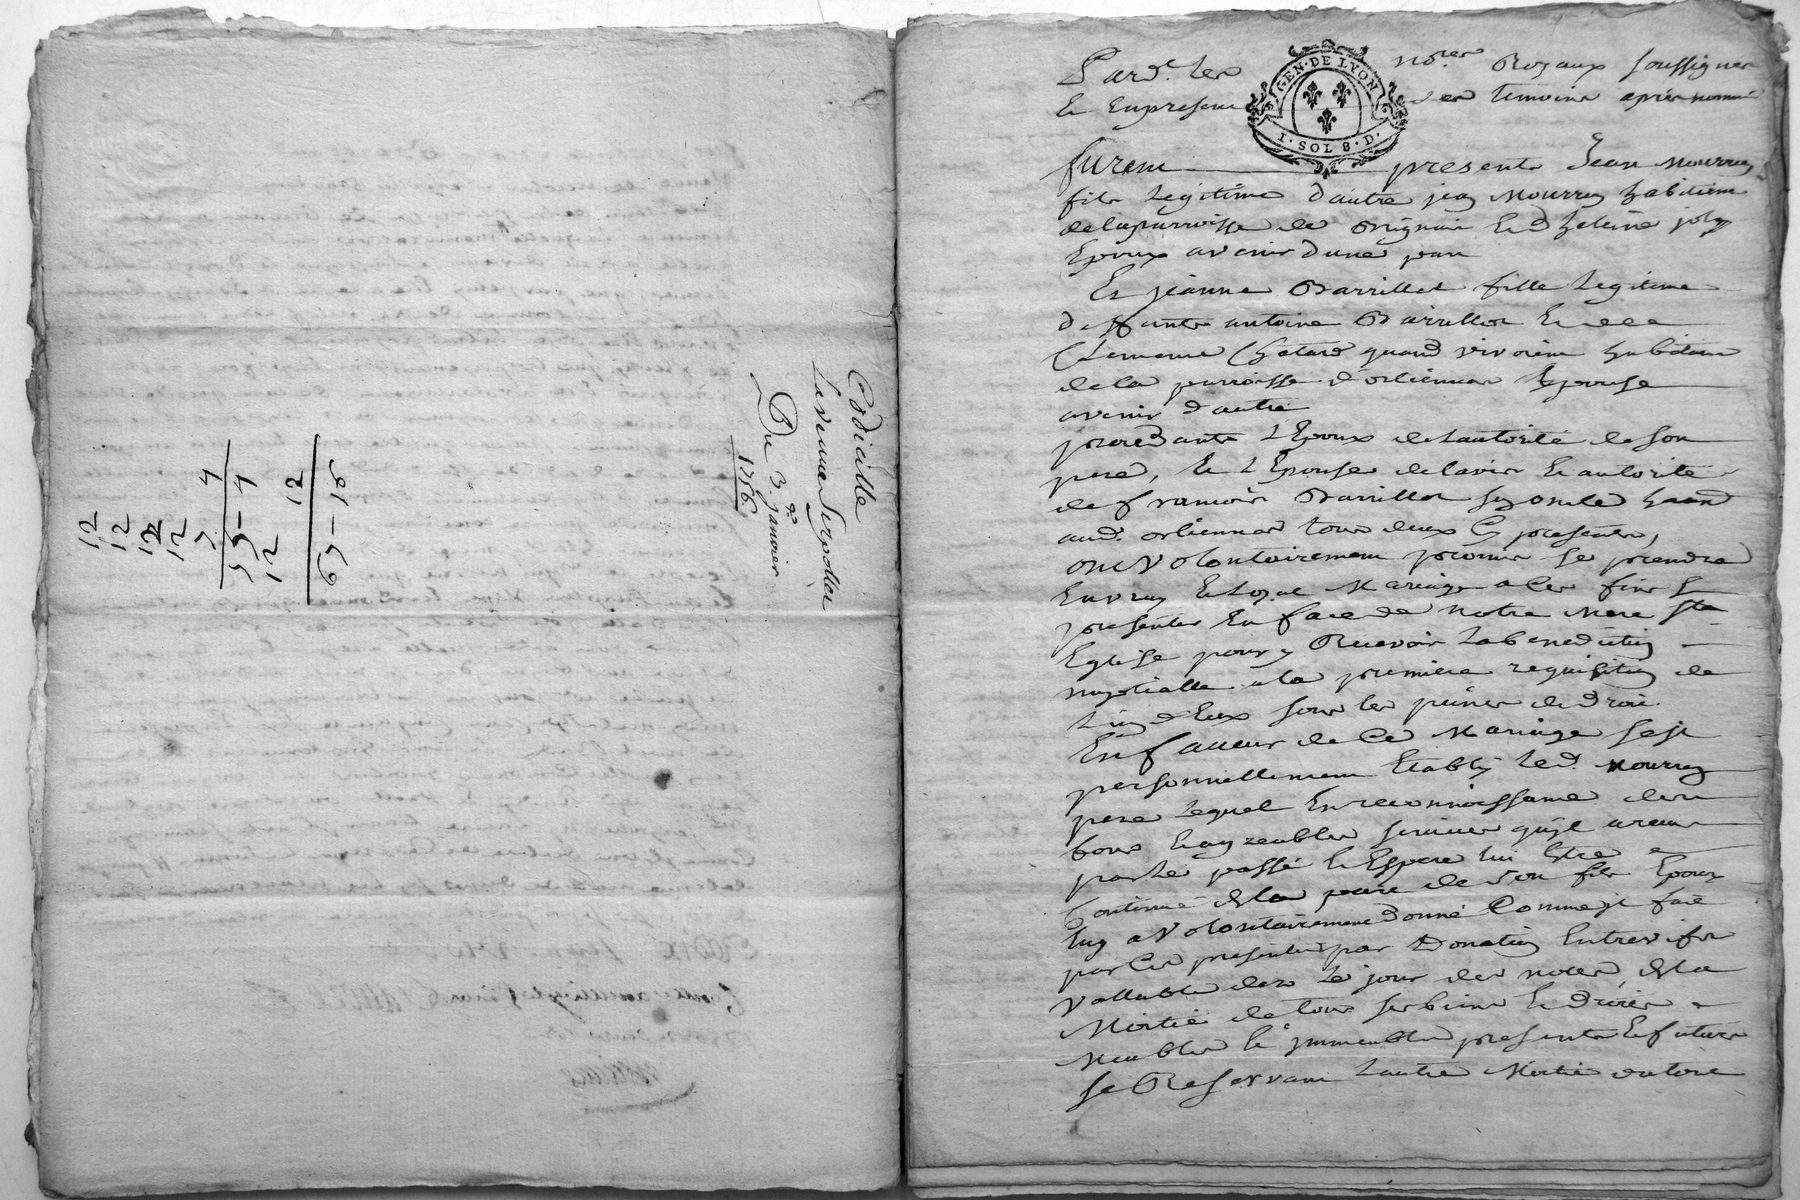 Codicille
La veuve Serpollet
Du 3.e janvier
1756
12
12
12
12
7
4
55-4
12
12
65-16
GEN. DE LYON
1. SOL 8. D.
Pard.t les no.res Royaux soussignes
Et en presence des temoins apres nommés
furent presents Jean Mourrey
fils legitime d'autre jean Mourrey habitans
de la parroisse de et d'heleine joly
Epoux avenir d'une part
Et jeanne Barrillot fille legitime
deffunts antoine Barrillot et de
Clemence Chatard quand vivoient habitans
de la parroisse d'orliennas Epouse
avenir d'autre
procedants L'Epoux de l'autorité de son
pere, Et L'Epouse de lavis Et autorité
de francois Barrillot sy oncle
aud. orliennas tous deux Cy presents,
ont volontairement promis se prendre
En vray Et Loyal Mariage a Ces fins se
presenter En face de notre Mere ste
Eglise pour y Recevoir La benediction
nuptialle a la premiere requisition de
L'un d'Eux sous les peines de droit
En faveur de Ce Mariage s'est
personnellement Etably Led. Mourrey
pere Lequel En reconnoissance des
bons Et agreables services qu'il a reçu
par le passé Et Espere lui Etre
Continué de la part de son fils Epoux
luy a volontairement donné Comme il fait
par Ces presentes par Donation Entrevifs
vallable des Le jour des noces de la
Moitié de tous ses biens Et droits
Meubles Et immeubles presents Et futurs
se Reservant L'autre Moitié